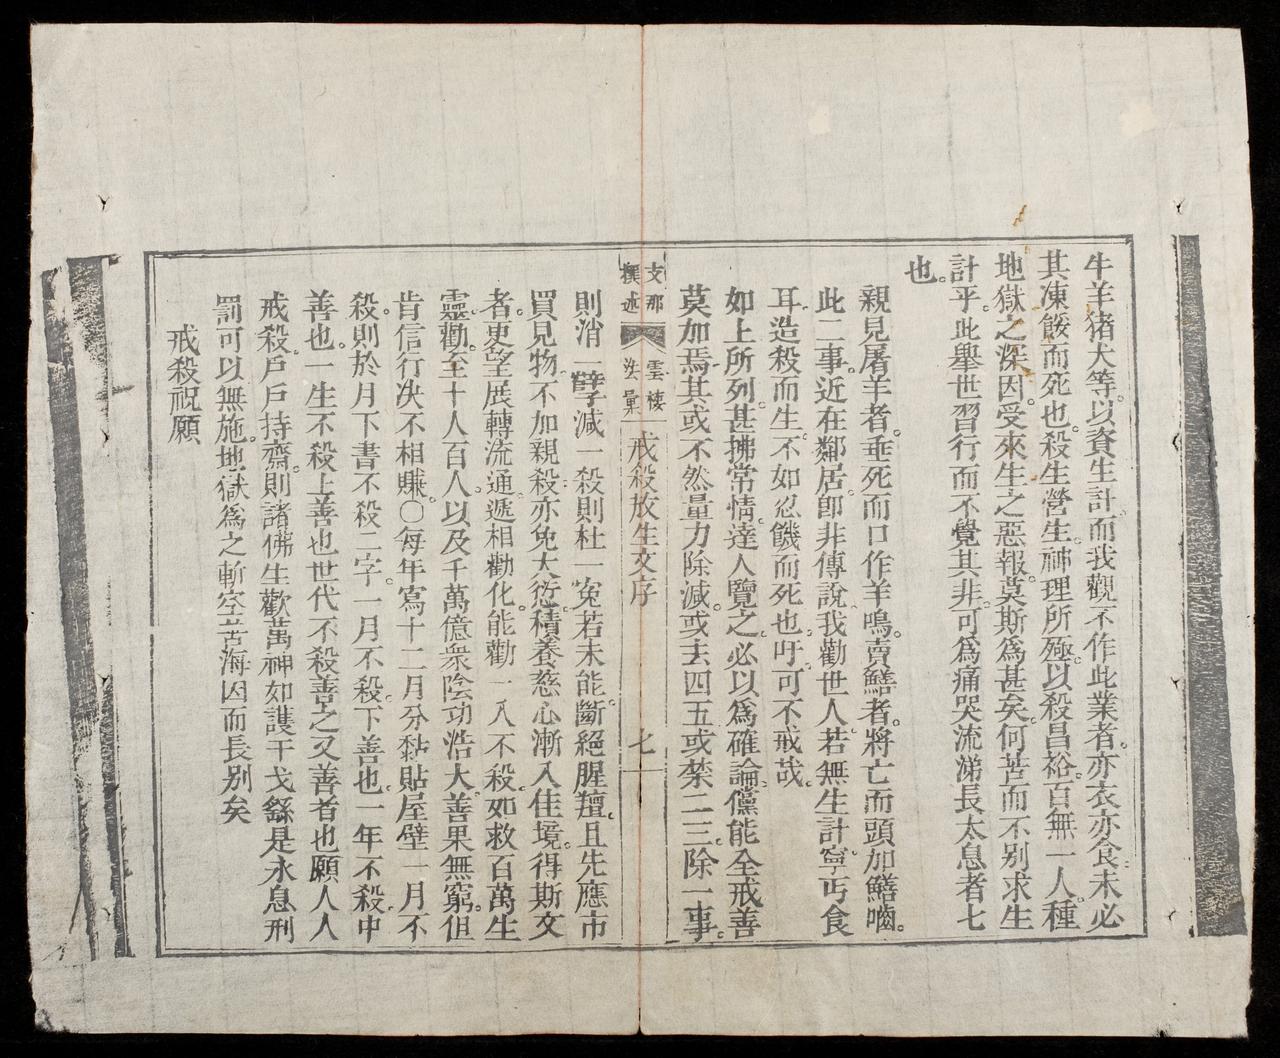 牛羊猪犬等。以資生計。而我觀不作此業者。亦衣亦食。未必
其凍餒而死也。殺生營生。神理所殛。以殺昌裕。百無一人。種
地獄之深因。受來生之惡報。莫斯為甚矣。何苦而不別求生
計乎。此舉世習行而不覺其非。可為痛哭流涕長太息者七
也。
親見屠羊者。垂死而口作羊鳴。賣鱔者。將亡而頭加鱔嚙。
此二事。近在鄰居。即非傳說。我勸世人。若無生計。寧丐食
耳。造殺而生。不如忍饑而死也。吁。可不戒哉。
如上所列。甚拂常情。達人覽之。必以為確論。儻能全戒。善
莫加焉。其或不然。量力除減。或去四五。或禁二三。除一事。
支那
撰述
雲棲
法彙
戒殺放生文序
七
則消一孽。減一殺。則杜一冤。若未能斷絕腥羶。且先應市
買見物。不加親殺。亦免大愆。積養慈心。漸入佳境。得斯文
者。更望展轉流通。遞相勸化。能勸一人不殺。如救百萬生
靈。勸至十人百人。以及千萬億眾。陰功浩大。善果無窮。但
肯信行。決不相賺。○每年寫十二月分。黏貼屋壁。一月不
殺。則於月下書不殺二字。一月不殺。下善也。一年不殺。中
善也。一生不殺。上善也。世代不殺。善之又善者也。願人人
戒殺。戶戶持齋。則諸佛生歡。萬神加護。干戈繇是永息。刑
罰可以無施。地獄為之頓空。苦海因而長別矣
戒殺祝願